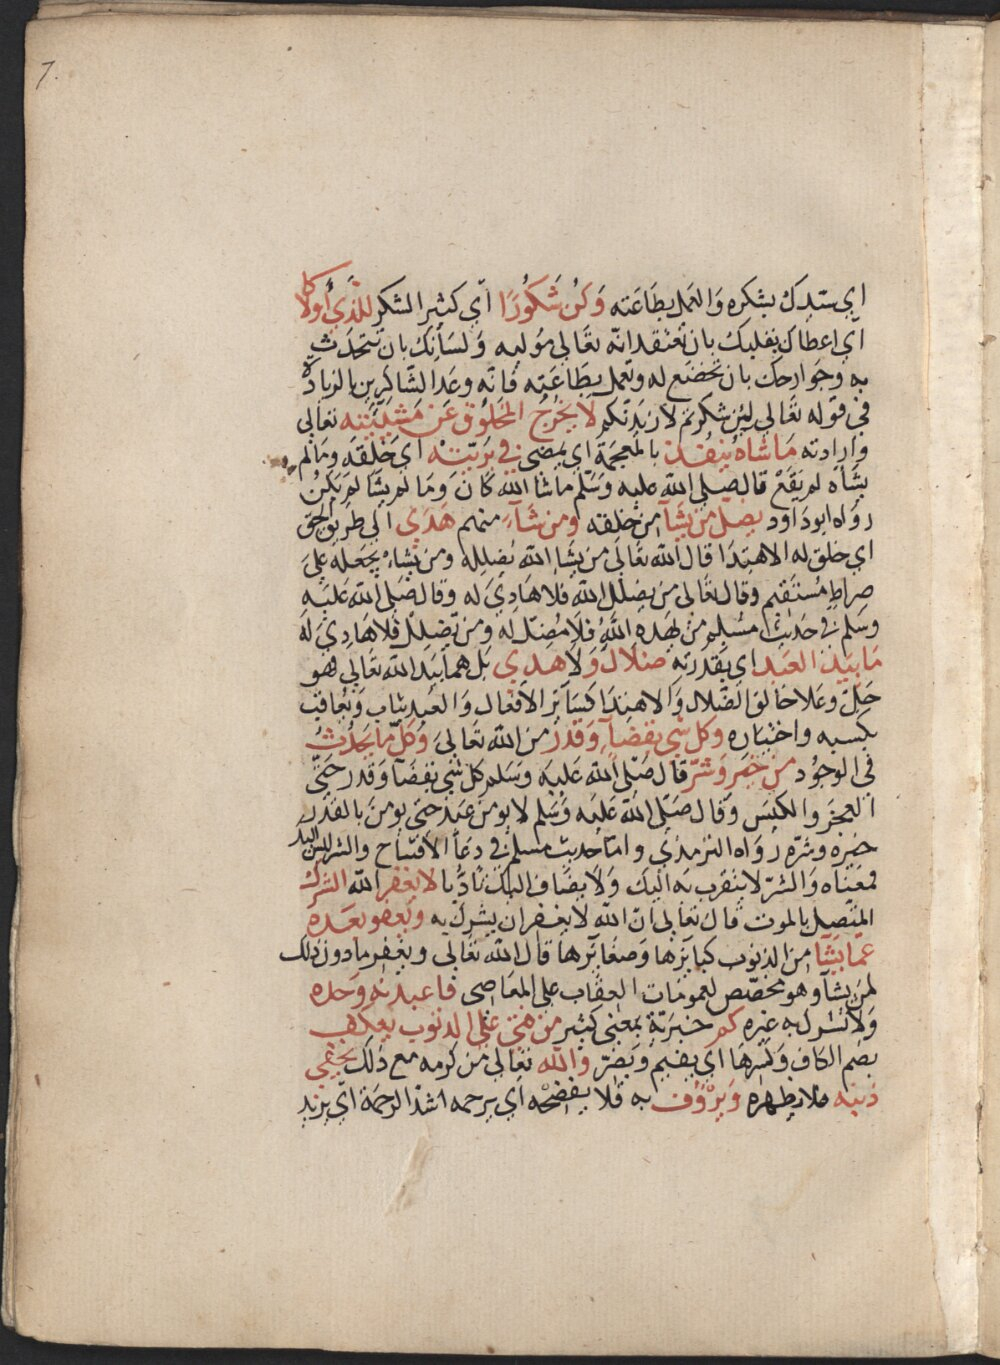 7.
اي ستدك بشكره وَالعَمل بطَاعَته وَكن شَكُورًا اَي كثير الشكر للذي أولاكا
اَي اعطاك بقلبك بان تعتقد انه تعَالى مُوليه وَلسَانِك بان تتحَدَث
به وجَوَارحك بان تخضَع له وتعمل بطَاعَته فانه وعَد الشاكرين بالزيادَة
في قوله تعَالى لئِن شكرتم لازيدَنّكم لا يَخرُج المخلوق عَن مَشيئته تعَالى
وارادته مَا شَاه ينفُذ بالمعجمَة اي يمضى في بَريّته اي خلقه ومَا لم
يشَاه لم يقَعْ قال صَلى الله عليه وَسَلم ما شا الله كانَ وَمَا لم يشَا لم يَكنُ
روَاه ابو دَاود يضلّ من يشَا من خلقه ومن شَآء منهم هَدَي الى طَريق الحق
اي خلق له الاهتدَا قال الله تعَالى مَن يشَا الله يُضلله ومن يشاءْ يَجعَله عَلىَ
صراط مُستَقيم وقال تعَالى مَن يضلل الله فلا هَادِيَ له وقال صَلى الله عَليه
وسَلم في حَديث مُسْلم من يهده اللهُ فلا مُضلّ له ومن يُضلل فلا هَادِيَ لَه
مَا بيَد العَبد اي بقُدرَته ضلال وَلا هدي بَل هما بيَد الله تعَالى هو
جَلّ وعَلا خالق الضلال وَالاهتدَا كسَائر الأفعَال وَالعَبد يثاب وَيُعاقب
بكسبه واختيَاره وكل شَيْ بقضَآء وَقدَر من الله تعَالىَ وَكلّ مَا يَحدُث
في الوجُود من خَير وَشَرّ قال صَلى الله عَليه وَسَلم كل شي بقضَآ وَقدَر حَتى
العَجز وَالكيسَ وَقال صَلى الله عَليه وَسَلم لا يومن عَبد حتى يومنَ بالقدَر
خيره وشرّه روَاه الترمذي وَامّا حَديث مسلم في دعَآ الافتتاح وَالشر ليسَ اليك
فمعنَاه وَالشرّ لا يتقرب به اليك وَلا يضَاف اليك تادُّبا لا يغفر الله الشرك
المتّصل بالموت قال تعَالى انّ الله لا يغفر ان يشرك به ويَعفو بَعدَه
عَمّا يشَا من الذنوب كبايرها وَصغَايرها قال الله تعَالى ويغفر ما دون ذلك
لمن يشا وهو مخصّص لعمومَات العقاب على المعَاصى فاعبدنه وَحده
وَلا تشرك به غيره كم خبَريّة بمَعنى كثير من فتى عَلى الذنوب يعكف
بضم الكاف وَكسرهَا اي يقيم وَيُصرّ وَالله تعَالى من كرمه مع ذلك يخفي
ذنبه فلا يظهره وَيَرْؤُف به فلا يفضحْه اي يرحمه اشدّ الرحمَة اي يزيد